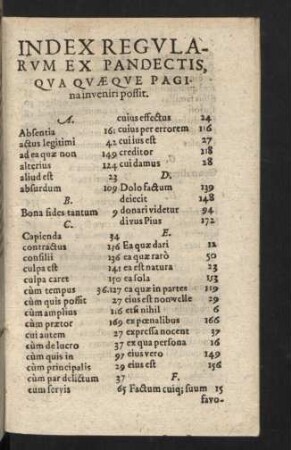 INDEX REGVLA-
RVM EX PANDECTIS,
QVA QVÆQVE PAGI-
na inveniri possit.
A.
Absentia 161
actus legitimi 42
ad ea quæ non 149
alterius 124
aliud est 23
absurdum 109
B.
Bona fides tantum 9
C.
Capienda 34
contractus 116
consilii 136
culpa est 141
culpa caret 150
cùm tempus 36.127
cùm quis possit 27
cùm amplius 116
cùm prætor 169
cui autem 27
cùm de lucro 37
cùm quis in 97
cùm principalis 29
cùm par delictum 37
cum servis 65
cuius effectus 24
cuius per errorem 116
cui ius est 27
creditor 118
cui damus 28
D.
Dolo factum 139
deiecit 148
donari videtur 94
divus Pius 172
E.
Ea quæ dari 12
ea quæ rarò 50
ea est natura 23
ea sola 153
ea quæ in partes 119
eius est non velle 29
etsi nihil 6
ex pœnalibus 166
expressa nocent 37
ex qua persona 16
eius vero 149
eius est 156
F.
Factum cuiq; suum 15
favo-